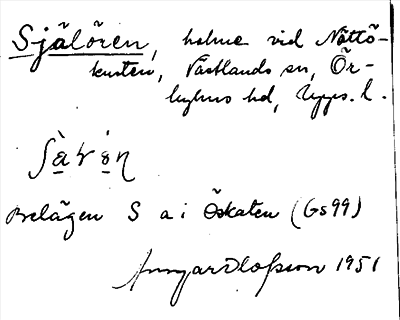 Själören, holme vid Nöttö-
kusten, Västlands sn, Ör-
byhus hd, Upps. l.
Belägen S a i Öskaten (Gs99)
Olofsson 1951